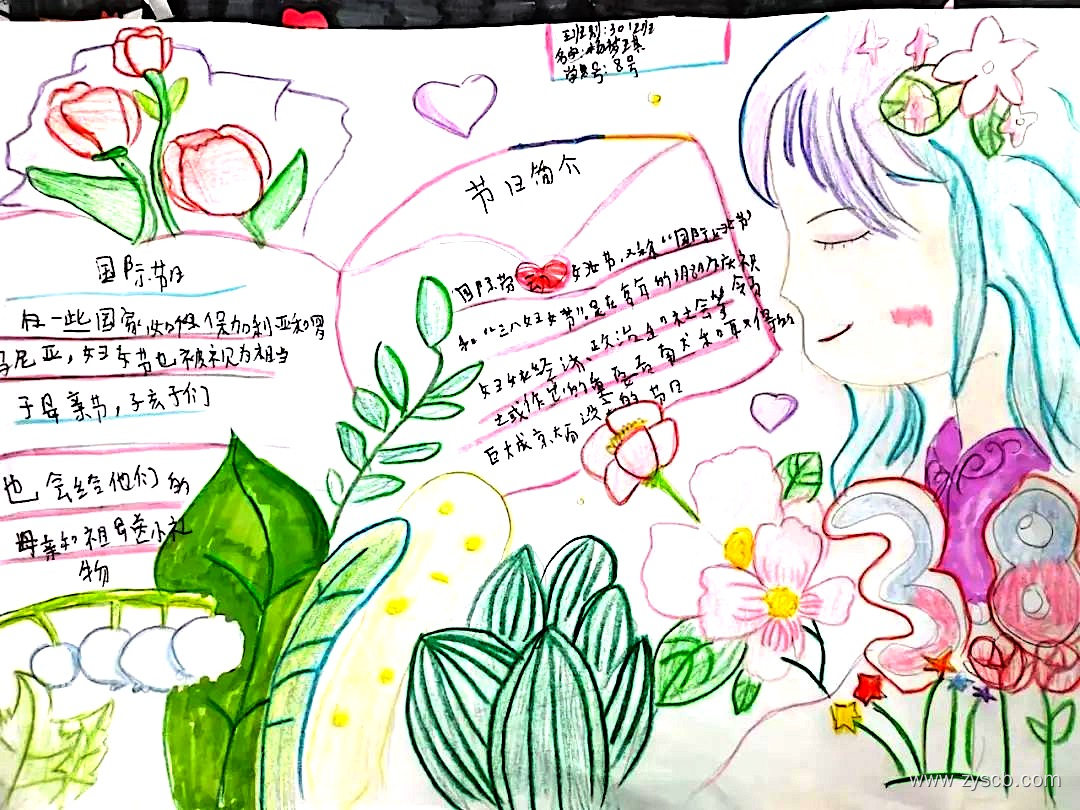 班别:301班
学号:8号
节日简介
国际劳动妇女节,又称“国际妇女节”
和“三八妇女节”。是在每年的3月8日为庆祝
妇女在经济、政治和社会等领
域作出的重要贡献和取得的
巨大成就而设立的节日
国际节日
在一些国家如保加利亚和罗
马尼亚,妇女节也被视为相当
于母亲节,孩子们
也会给他们的
母亲和祖母送小礼
物
38
www.zyscb.com